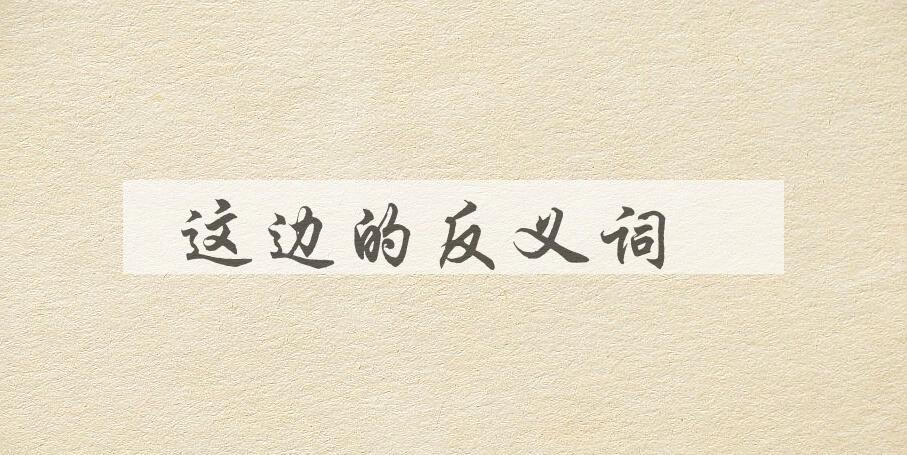 这边的反义词